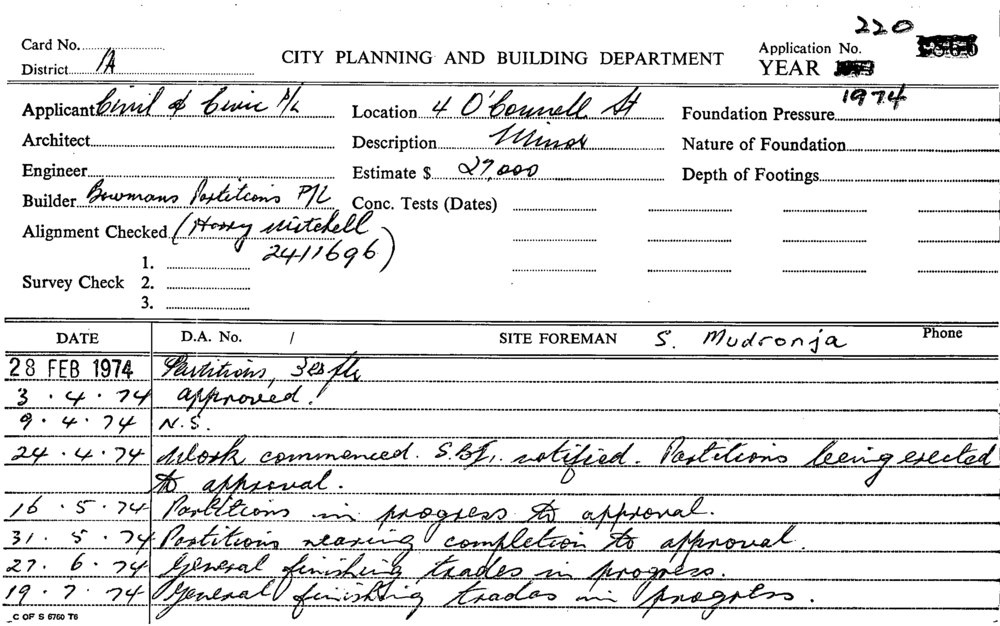 220
Card No. Application No.
CITY PLANNING AND BUILDING DEPARTMENT
District 1A YEAR
1974
Applicant Civil & Civic P/L Location 4 O'Connell St Foundation Pressure
Architect Description Minor Nature of Foundation
Engineer Estimate $ 27,000 Depth of Footings
Builder Bowmans Partitions P/L Conc. Tests (Dates)
Alignment Checked (Harry Mitchell
2411696)
1.
Survey Check 2.
3.
DATE D.A. No. / SITE FOREMAN S. Mudronja Phone
28 FEB 1974 Partitions,
3.4.74 approved.
9.4.74 N.S.
24.4.74 Work commenced. notified. Partitions being erected
to approval.
16.5.74 Partitions in progress to approval.
31.5.74 Partitions nearing completion to approval.
27.6.74 General finishing trades in progress.
19.7.74 General finishing trades in progress.
C OF S 5760 T6